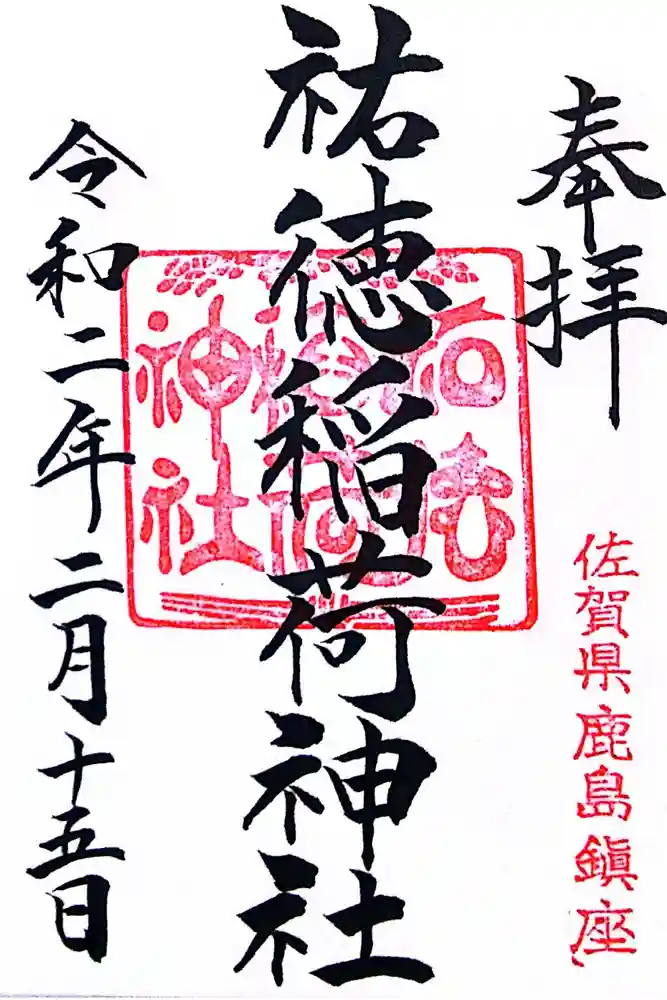 奉拝
佐賀県鹿島鎮座
祐徳稲荷神社
令和二年二月十五日
神社